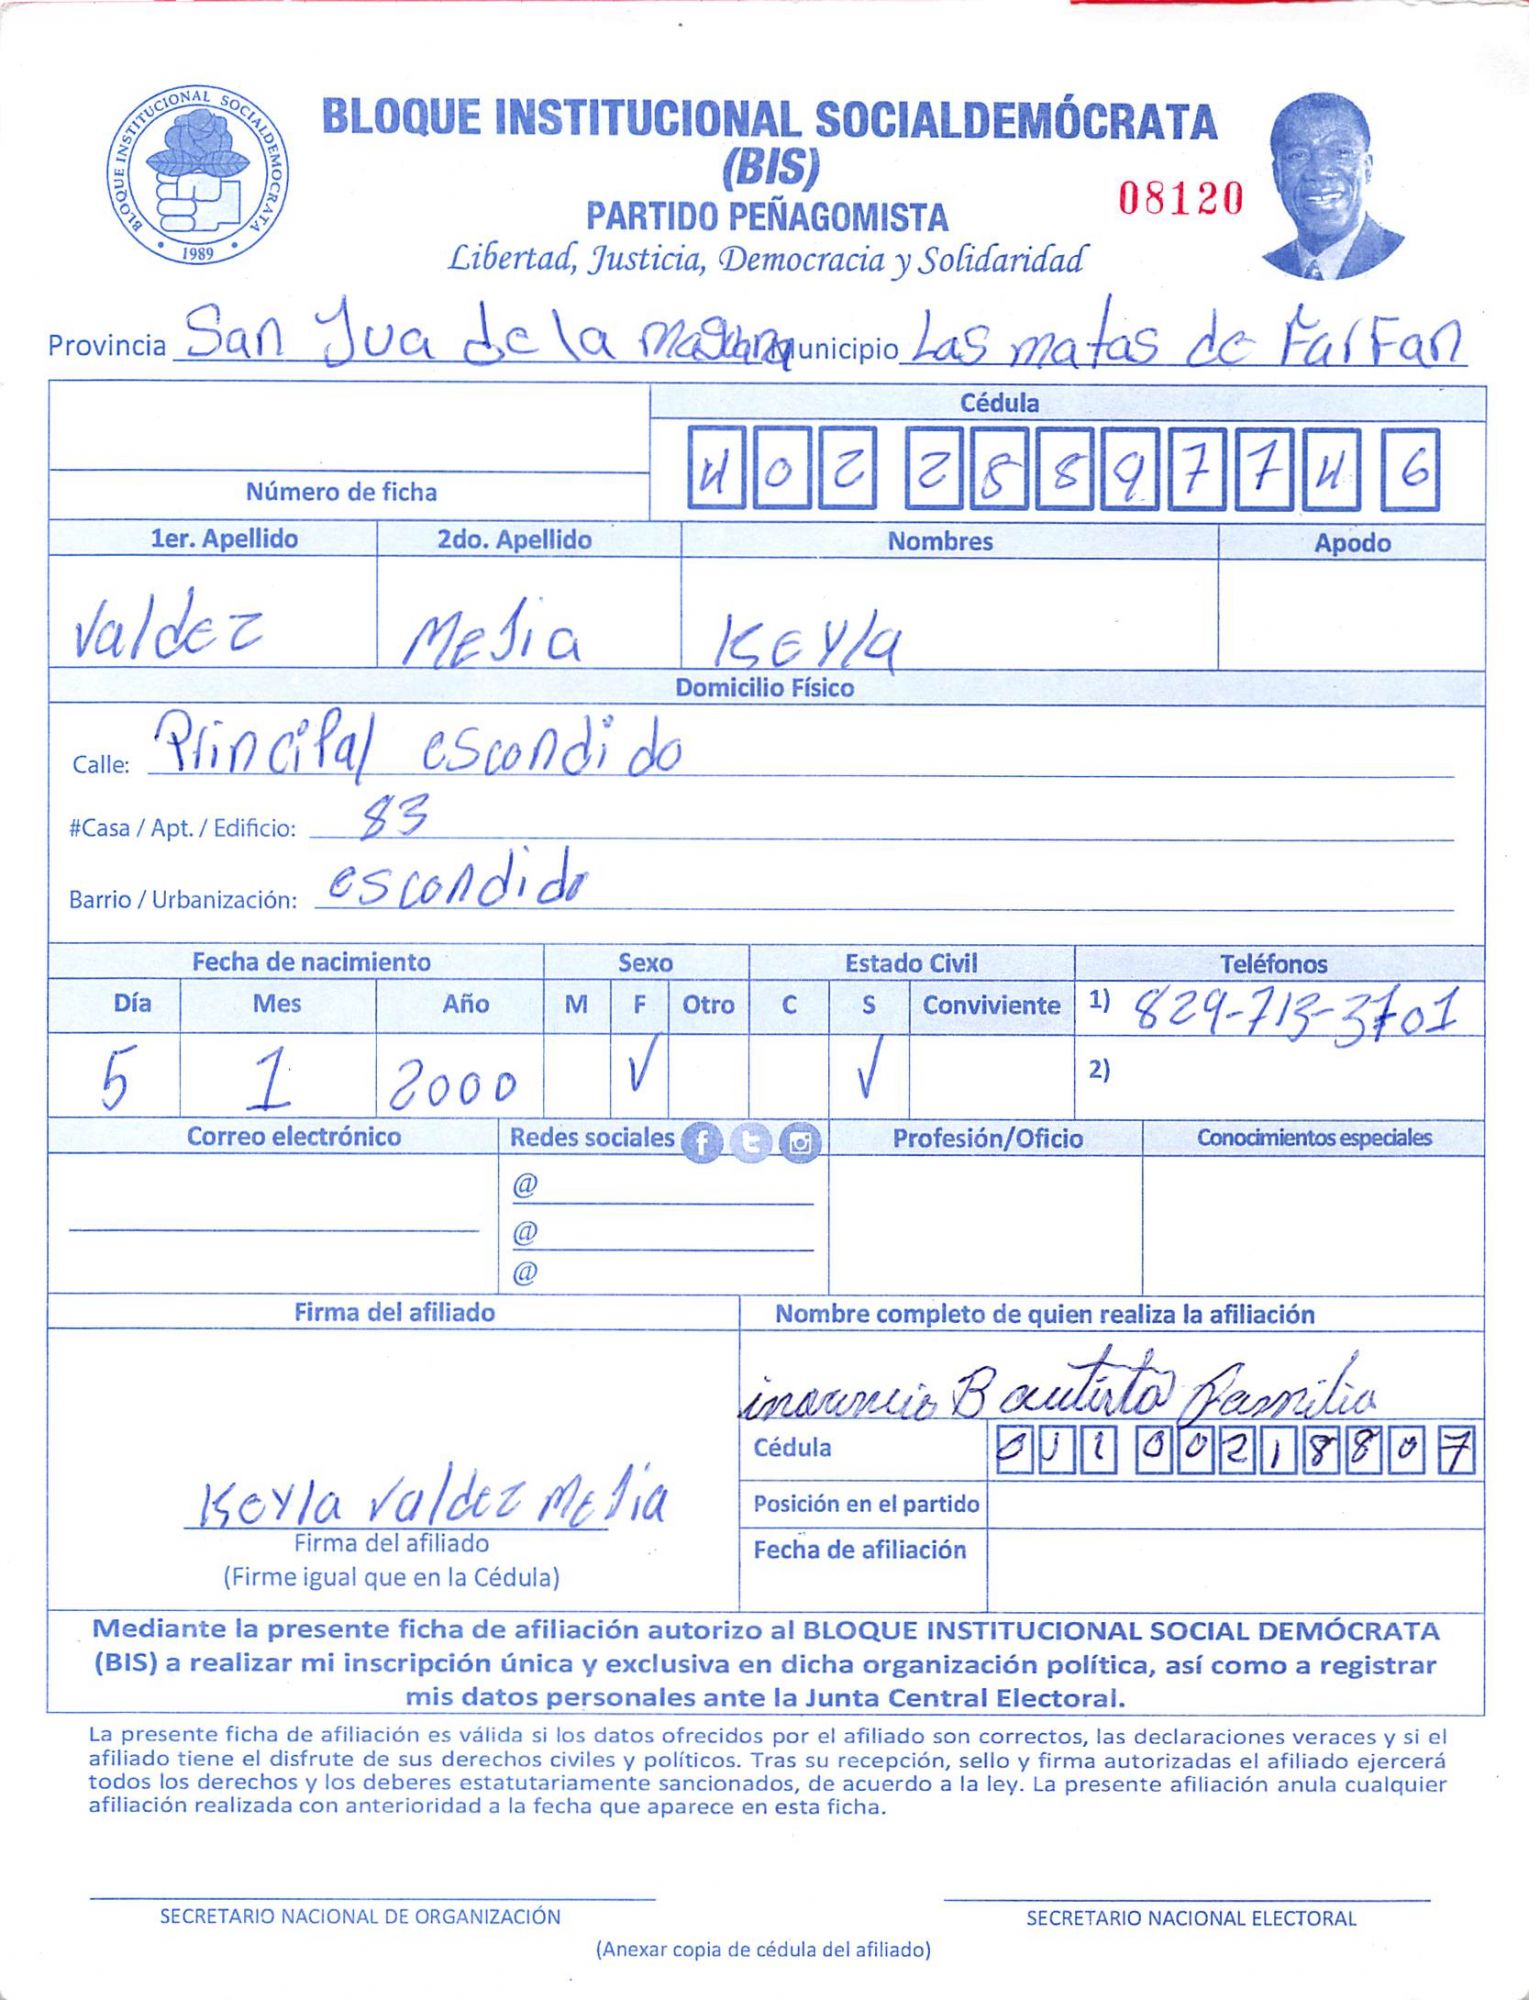 BLOQUE INSTITUCIONAL SOCIALDEMOCRATA
1989
BLOQUE INSTITUCIONAL SOCIALDEMÓCRATA
(BIS)
08120
PARTIDO PEÑAGOMISTA
Libertad, Justicia, Democracia y Solidaridad
Provincia San Jua de la Maguana Municipio Las matas de FarFan
Cédula
402 2889774 6
Número de ficha
1er. Apellido 2do. Apellido Nombres Apodo
Valdez Mejia Keyla
Domicilio Físico
Calle: Principal escondido
#Casa / Apt. / Edificio: 83
Barrio / Urbanización: escondido
Fecha de nacimiento Sexo Estado Civil Teléfonos
Día Mes Año M F Otro C S Conviviente 1) 829-713-3701
5 1 2000 √ √ 2)
Correo electrónico Redes sociales Profesión/Oficio Conocimientos especiales
@
@
@
Firma del afiliado Nombre completo de quien realiza la afiliación
Bautista Familia
Cédula 011 0021880 7
Keyla Valdez Mejia
Posición en el partido
Firma del afiliado
Fecha de afiliación
(Firme igual que en la Cédula)
Mediante la presente ficha de afiliación autorizo al BLOQUE INSTITUCIONAL SOCIAL DEMÓCRATA
(BIS) a realizar mi inscripción única y exclusiva en dicha organización política, así como a registrar
mis datos personales ante la Junta Central Electoral.
La presente ficha de afiliación es válida si los datos ofrecidos por el afiliado son correctos, las declaraciones veraces y si el
afiliado tiene el disfrute de sus derechos civiles y políticos. Tras su recepción, sello y firma autorizadas el afiliado ejercerá
todos los derechos y los deberes estatutariamente sancionados, de acuerdo a la ley. La presente afiliación anula cualquier
afiliación realizada con anterioridad a la fecha que aparece en esta ficha.
SECRETARIO NACIONAL DE ORGANIZACIÓN SECRETARIO NACIONAL ELECTORAL
(Anexar copia de cédula del afiliado)